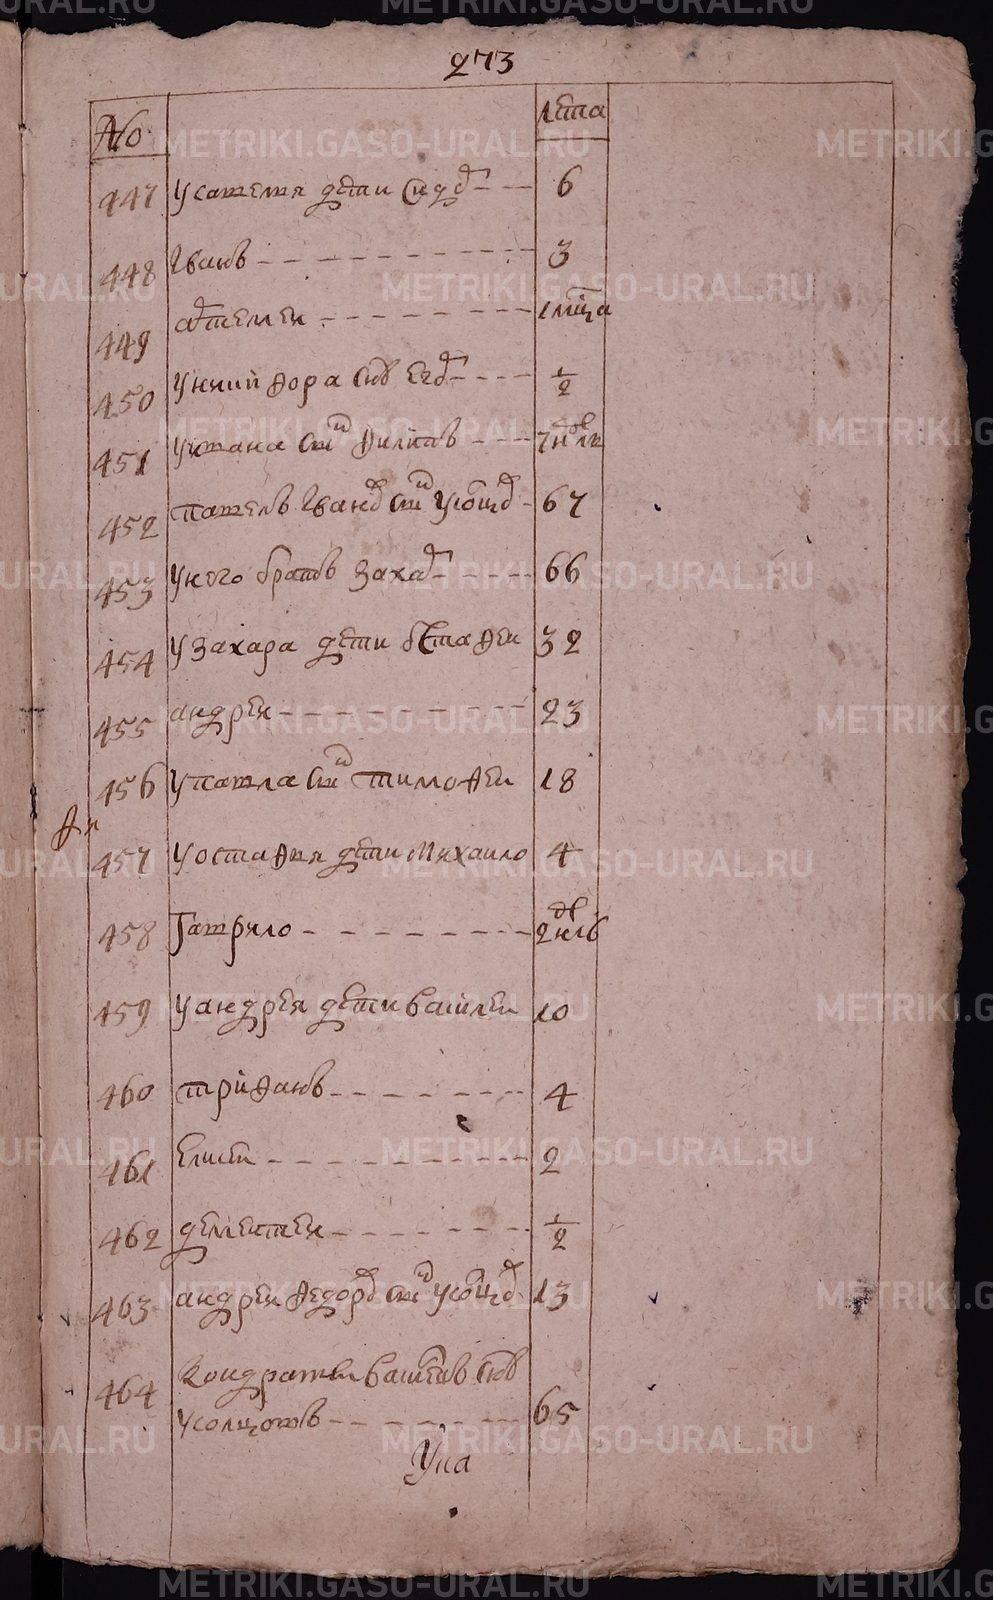 273
No лета
447 У саженя дети Сидоръ 6
448 Иванъ 3
449 артемеи 1 мца
450 У него сынъ Егоръ 1/2
451 У ивана сынъ Филипъ 7 недель
452 Павелъ Ивановъ сынъ Усолцовъ 67
453 У него братъ Захаръ 66
454 У Захара дети Естафеи 32
455 андреи 23
456 У павла сынъ тимофеи 18
457 У остафья дети Михаило 4
458 Гаврило 2 нед
459 У андрея дети василеи 10
460 трифанъ 4
461 Елисеи 2
462 дементеи 1/2
463 андреи Федоровъ сынъ усолцовъ 13
464 Кондратеи васильевъ снъ
усолцовъ 65
METRIKI.GASO-URAL.RU